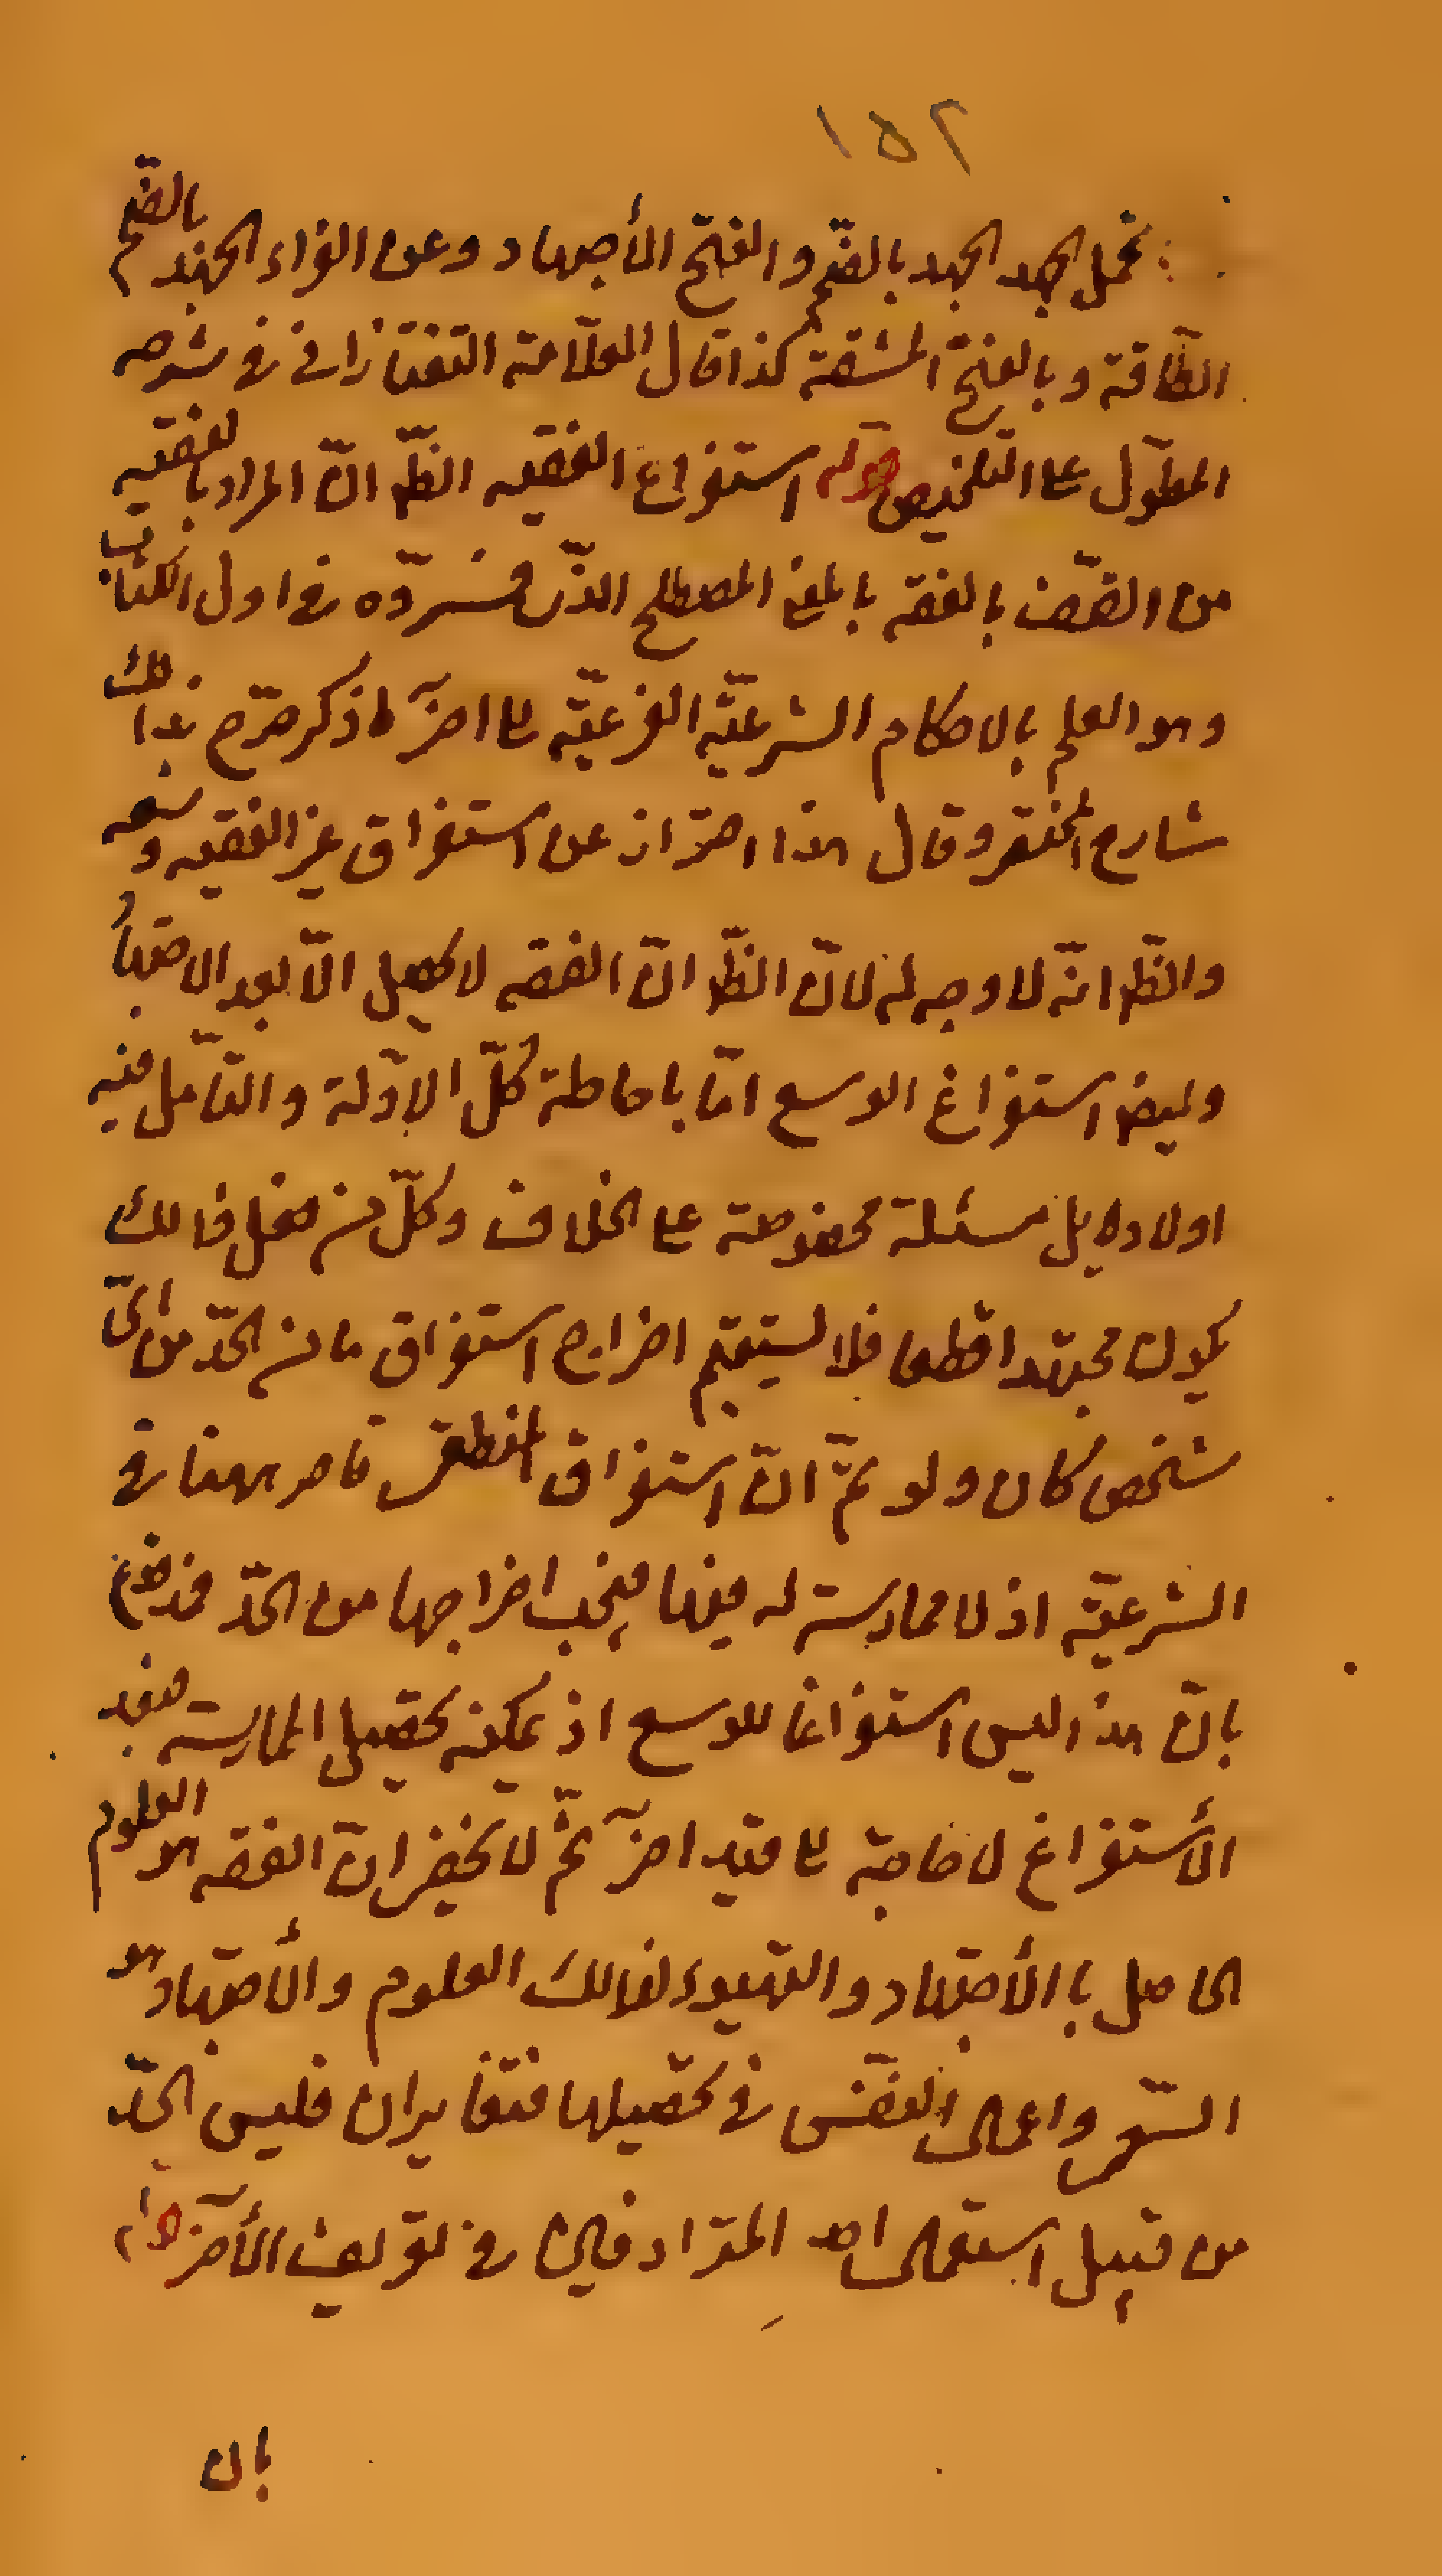 ١٥٢
تحمل الجهد الجهد بالضم والفتح الأجهاد وعن الفراء الجهد بالضم
الطاقة وبالفتح المشقة كذا قال العلّامة التفتازاني في شرحه
المطوّل على التلخيص قوله استفراغ الفقيه الظّ انّ المراد بالفقيه
من اتّصف بالفقه بالمعنى المصطلح الذي فسّروه في اول الكتاب
وهو العلم بالاحكام الشرعيّة الفرعيّة الى اخر ما ذكر صرّح بذالك
شارح المختصر وقال هذا احتراز عن استفراق غير الفقيه وسعه
والظّ انّه لا وجه له لانّ الظّ انّ الفقه لا يحصل الّا بعد الاجتهاد
وليعنى استفراغ الوسع امّا باحاطة كلّ الادّلة والتأمل فيه
اولا دلايل مسئلة مخصوصة على الخلاف وكلّ من فعل ذالك
يكون مجتهدا قطعا فلا يستقيم اخراج استفراق ما من الحدّ من اىّ
شخص كان ولو تمّ انّ استفراق المنطقى قاصر ههنا في
الشرعيّة اذ لا ممارسة له فيها فيجب اخراجها من الحدّ فمدفوع
بانّ هذا ليس استفراغا للوسع اذ يمكنه تحصيل الممارسة فبعد
الأستفراغ لا حاجة الى قيد اخر ثمّ لا يخفى انّ الفقه هو العلوم
الحاصل باالأجتهاد والتهيوء لذالك العلوم والأجتهاد هو
السّعى واعمال النفس في تحصيلها فتغايران فليس الحدّ
من قبيل استعمال احد المترادفين في تعريف الأخر
بان